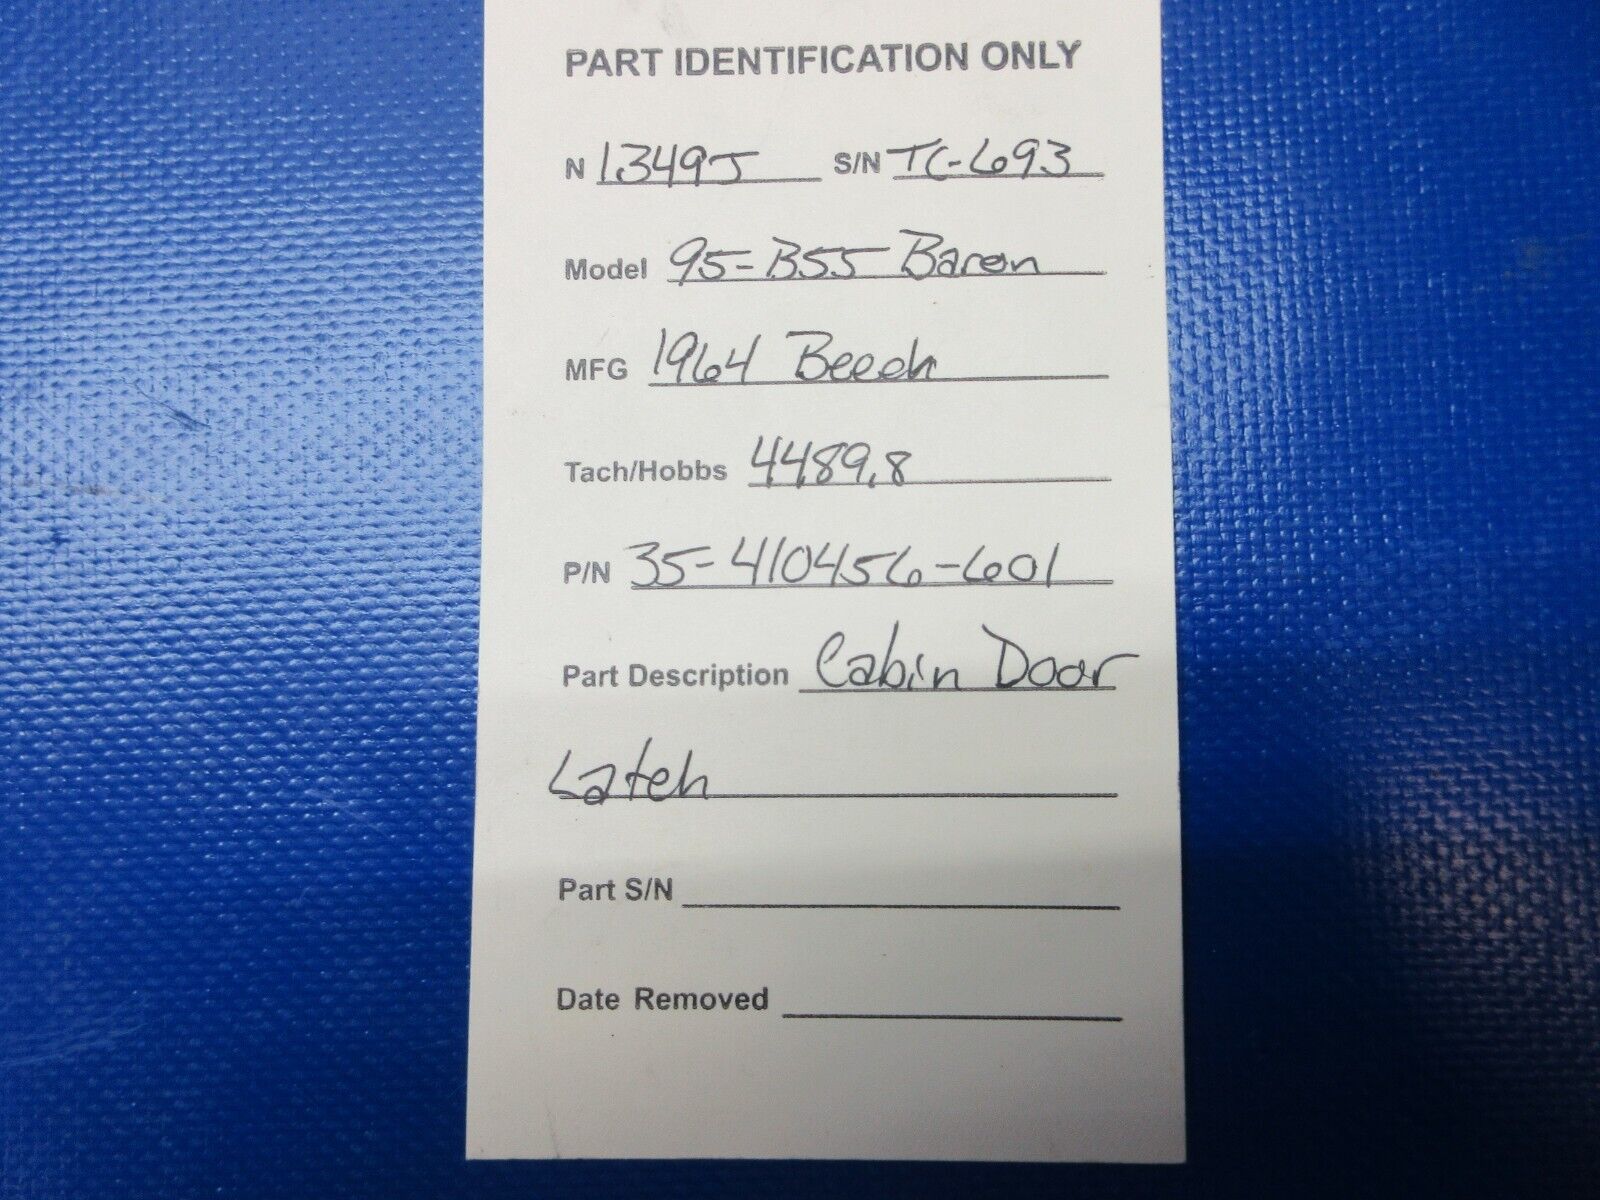 PART IDENTIFICATION ONLY
N 1349J S/N TC-693
Model 95-B55 Baron
MFG 1964 Beech
Tach/Hobbs 4489.8
P/N 35-410456-601
Part Description Cabin Door
Latch
Part S/N
Date Removed